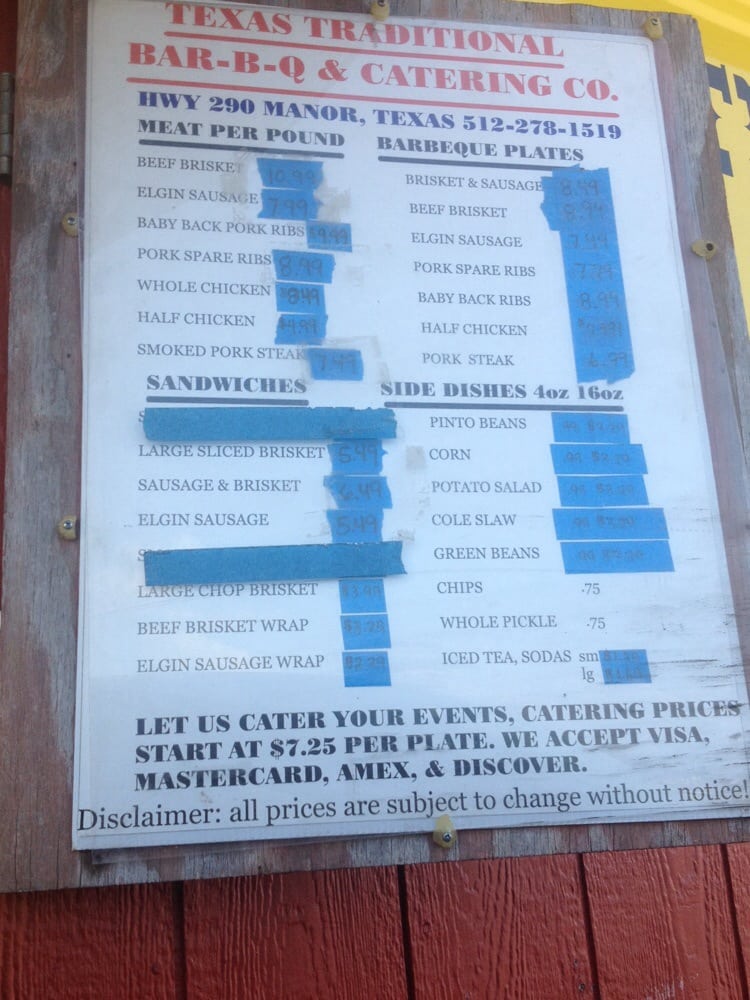 TEXAS TRADITIONAL
BAR-B-Q & CATERING CO.
HWY 290 MANOR, TEXAS 512-278-1519
MEAT PER POUND
BEEF BRISKET 10.99
ELGIN SAUSAGE 7.99
BABY BACK PORK RIBS $9.99
PORK SPARE RIBS 8.99
WHOLE CHICKEN $8.49
HALF CHICKEN $4.99
SMOKED PORK STEAK 7.49
BARBEQUE PLATES
BRISKET & SAUSAGE 8.49
BEEF BRISKET 8.94
ELGIN SAUSAGE
PORK SPARE RIBS
BABY BACK RIBS 8.94
HALF CHICKEN
PORK STEAK 6.99
SANDWICHES
LARGE SLICED BRISKET 5.49
SAUSAGE & BRISKET 6.49
ELGIN SAUSAGE 5.49
LARGE CHOP BRISKET
BEEF BRISKET WRAP
ELGIN SAUSAGE WRAP $2.29
SIDE DISHES 4oz 16oz
PINTO BEANS
CORN
POTATO SALAD
COLE SLAW
GREEN BEANS
CHIPS .75
WHOLE PICKLE .75
ICED TEA, SODAS sm
lg
LET US CATER YOUR EVENTS, CATERING PRICES
START AT $7.25 PER PLATE. WE ACCEPT VISA,
MASTERCARD, AMEX, & DISCOVER.
Disclaimer: all prices are subject to change without notice!